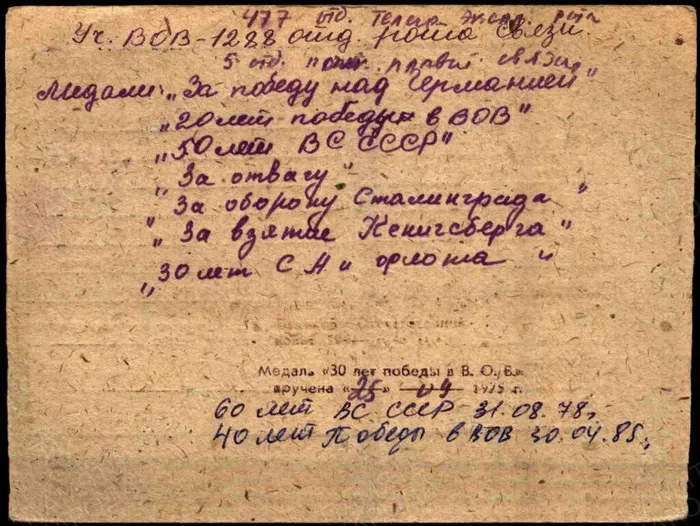 477 отд. Телегр Экспл. рота
Уч. ВОВ-1288 отд. рота связи.
5 отд. полк правит. связи
Медали: „За победу над Германией"
„20 лет победы в ВОВ"
„50 лет ВС СССР"
„За отвагу"
„За оборону Сталинграда"
„За взятие Кенигсберга"
„30 лет С А и флота"
Медаль «30 лет победы в В. О. В.»
вручена «25» 09 1975 г.
60 лет ВС СССР 31.08.78,
40 лет Победы в ВОВ 30.04.85,